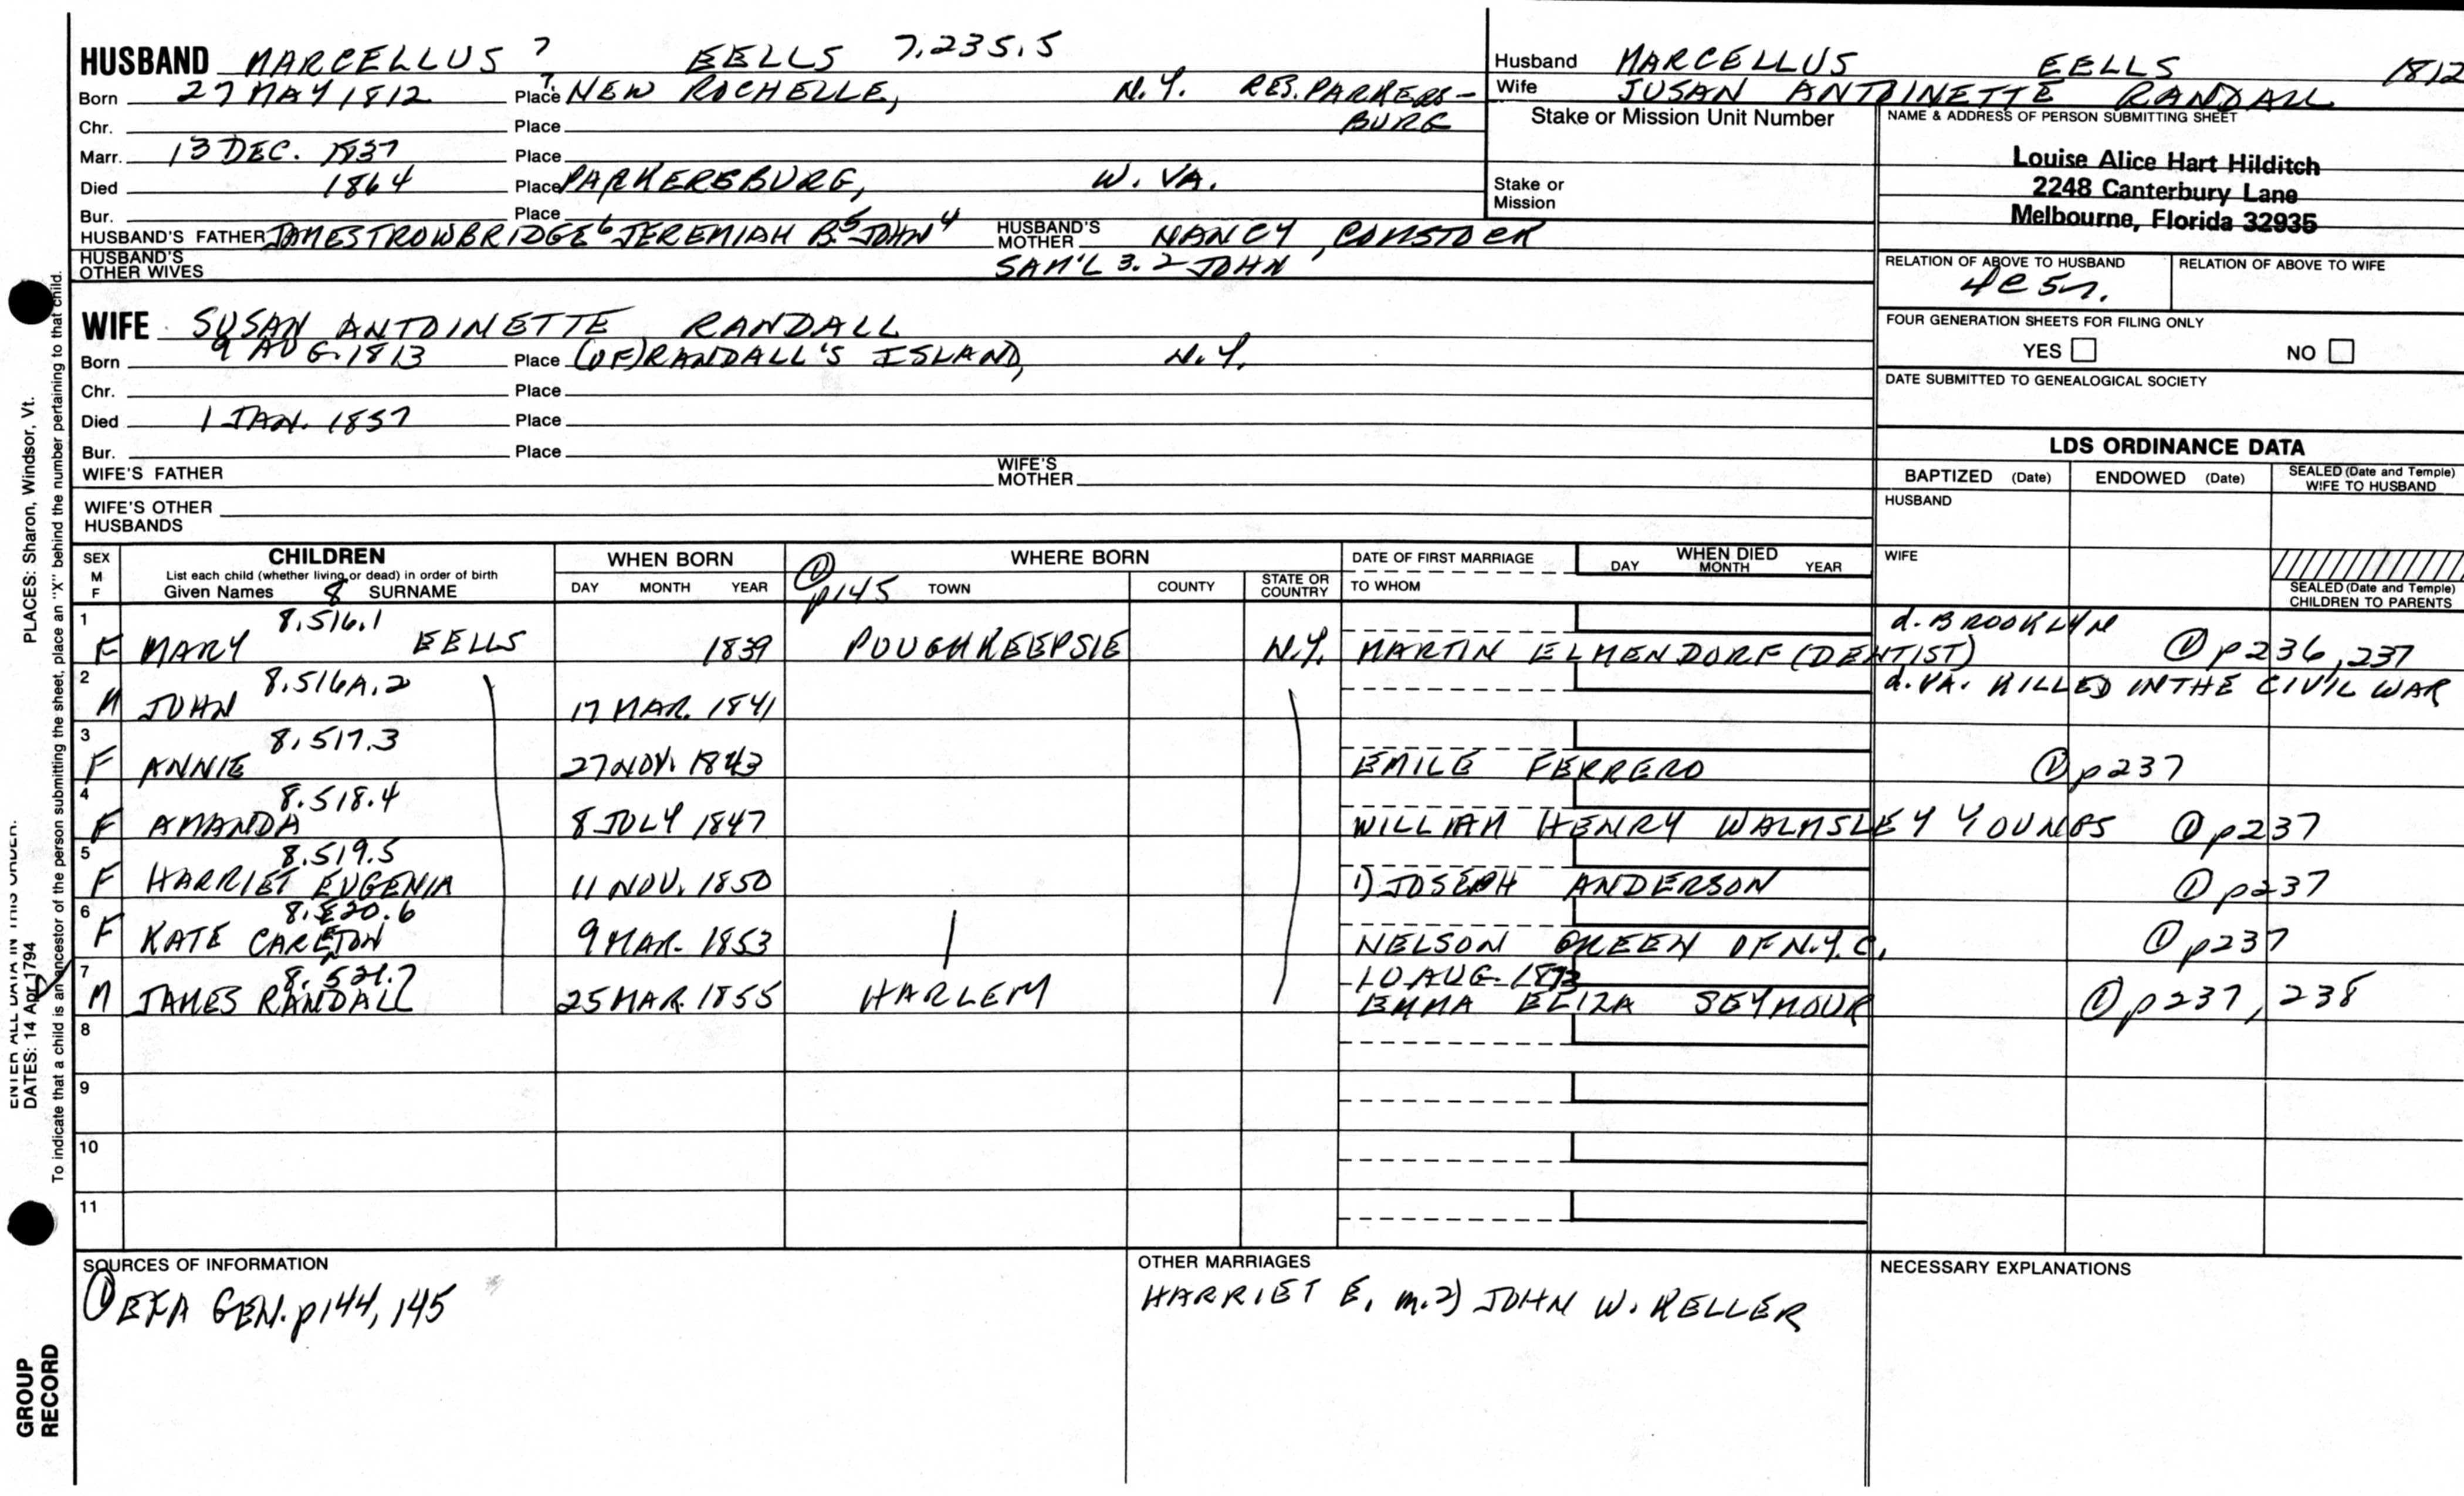 HUSBAND MARCELLUS 7 EELLS 7.235.5
Born 27 MAY 1812 Place ? NEW ROCHELLE, N.Y. RES. PARKERS-
Chr. Place BURG
Marr. 13 DEC. 1837 Place
Died 1864 Place PARKERSBURG, W. VA.
Bur. Place
HUSBAND'S FATHER JAMES TROWBRIDGE 6 JEREMIAH B. 5 JOHN 4 HUSBAND'S MOTHER NANCY COMSTOCK
HUSBAND'S OTHER WIVES SAM'L 3. 2 JOHN 1
Husband MARCELLUS EELLS 1812
Wife SUSAN ANTOINETTE RANDALL
Stake or Mission Unit Number
Stake or Mission
NAME & ADDRESS OF PERSON SUBMITTING SHEET
Louise Alice Hart Hilditch
2248 Canterbury Lane
Melbourne, Florida 32935
RELATION OF ABOVE TO HUSBAND RELATION OF ABOVE TO WIFE
4C5r.
FOUR GENERATION SHEETS FOR FILING ONLY
YES NO
DATE SUBMITTED TO GENEALOGICAL SOCIETY
WIFE SUSAN ANTOINETTE RANDALL
Born 9 AUG. 1813 Place (OF) RANDALL'S ISLAND, N.Y.
Chr. Place
Died 1 JAN. 1857 Place
Bur. Place
WIFE'S FATHER WIFE'S MOTHER
WIFE'S OTHER HUSBANDS
LDS ORDINANCE DATA
BAPTIZED (Date) ENDOWED (Date) SEALED (Date and Temple) WIFE TO HUSBAND
HUSBAND
WIFE
SEALED (Date and Temple) CHILDREN TO PARENTS
SEX M F CHILDREN WHEN BORN WHERE BORN DATE OF FIRST MARRIAGE WHEN DIED
List each child (whether living or dead) in order of birth
Given Names 8 SURNAME DAY MONTH YEAR ① p145 TOWN COUNTY STATE OR COUNTRY TO WHOM DAY MONTH YEAR
1 8.516.1 d. BROOKLYN
F MARY EELLS 1839 POUGHKEEPSIE N.Y. MARTIN ELMENDORF (DENTIST) ① p236, 237
2 8.516A.2 d. VA. KILLED IN THE CIVIL WAR
M JOHN 17 MAR. 1841
3 8.517.3
F ANNIE 27 NOV. 1843 EMILE FERRERO ① p237
4 8.518.4
F AMANDA 8 JULY 1847 WILLIAM HENRY WALMSLEY YOUNGS ① p237
5 8.519.5
F HARRIET EUGENIA 11 NOV. 1850 1) JOSEPH ANDERSON ① p237
6 8.520.6
F KATE CARLETON 9 MAR. 1853 NELSON GREEN OF N.Y.C. ① p237
7 8.521.7 10 AUG. 1873
M JAMES RANDALL 25 MAR. 1855 HARLEM EMMA ELIZA SEYMOUR ① p237, 238
8
9
10
11
SOURCES OF INFORMATION
① EFA GEN. p144, 145
OTHER MARRIAGES
HARRIET E. m. 2) JOHN W. KELLER
NECESSARY EXPLANATIONS
PLACES: Sharon, Windsor, Vt.
To indicate that a child is an ancestor of the person submitting the sheet, place an "X" behind the number pertaining to that child.
ENTER ALL DATA IN THIS ORDER:
DATES: 14 Apr 1794
GROUP
RECORD